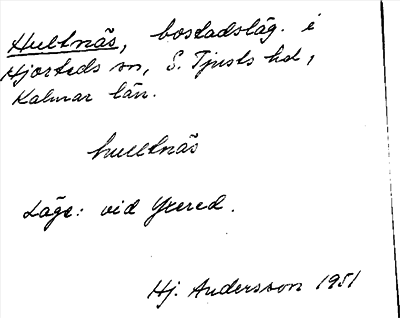 Hultnäs, bostadsläg. i
Hjorteds sn, S. Tjusts hd,
Kalmar län.
hultnäs
Läge: vid Yxered.
Hj. Andersson 1951